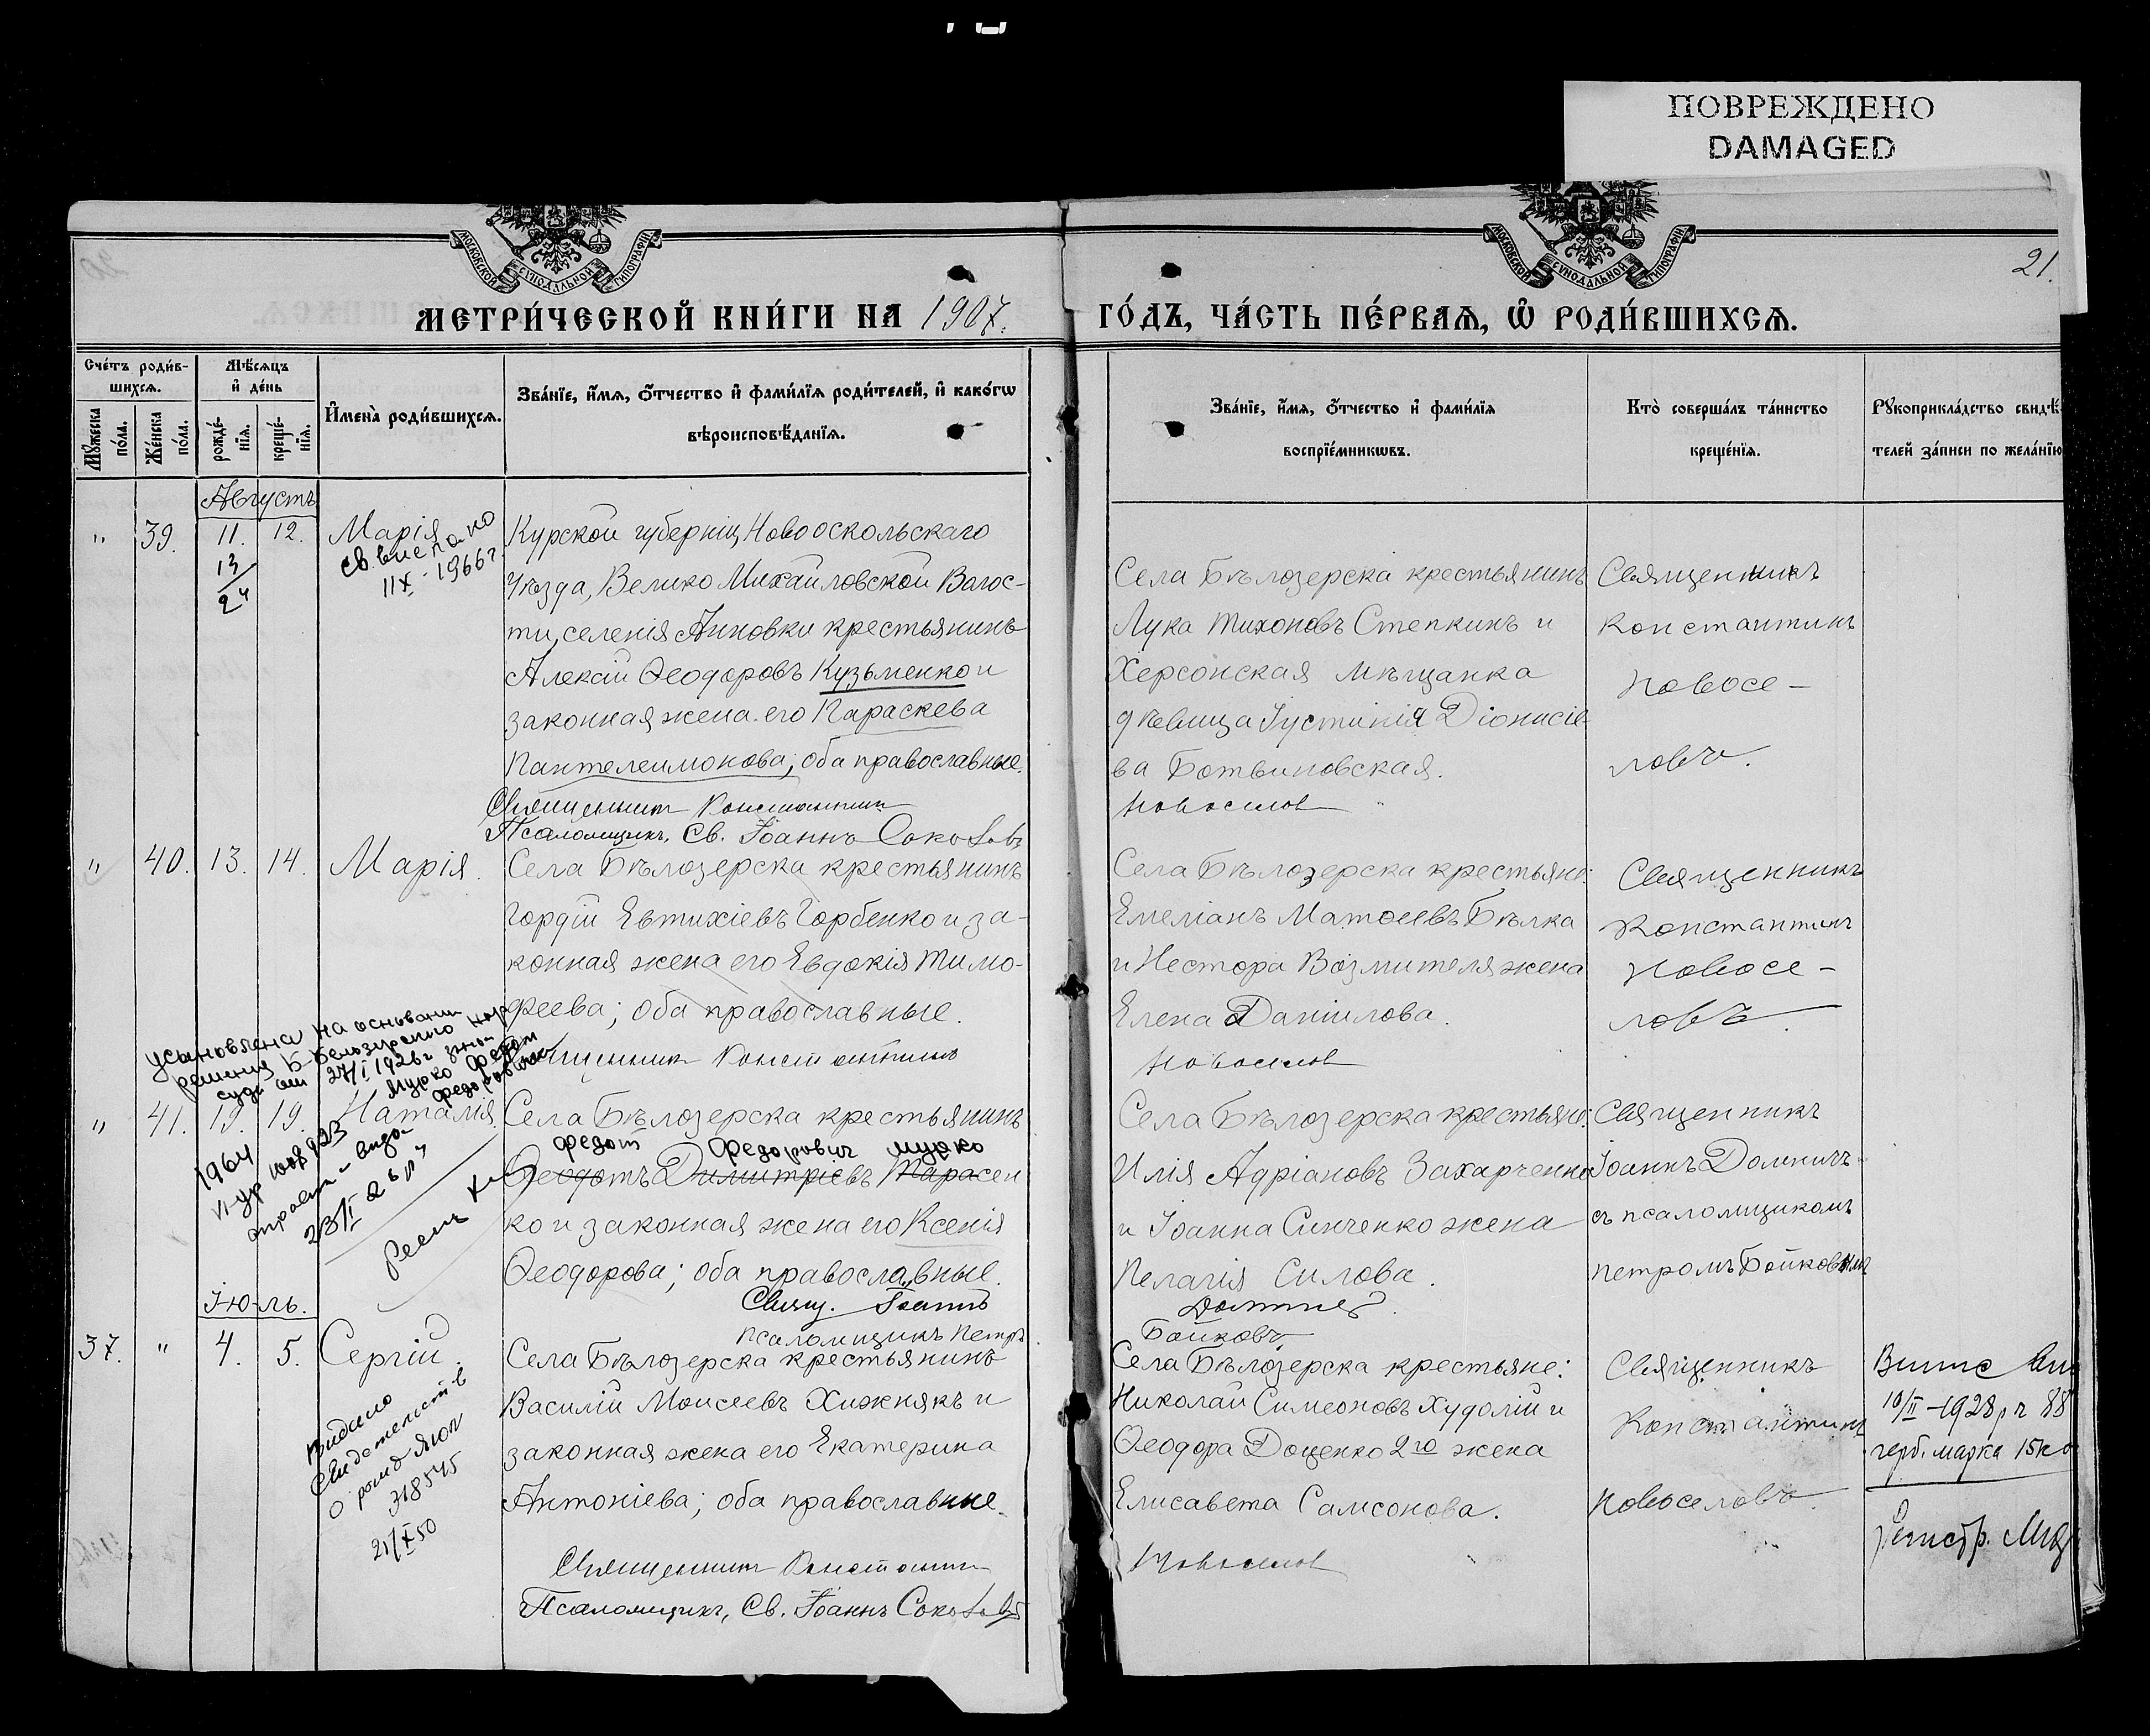 ПОВРЕЖДЕНО
DAMAGED
МОСКОВСКОЙ СУНОДАЛЬНОЙ ТИПОГРАФІИ
МОСКОВСКОЙ СУНОДАЛЬНОЙ ТИПОГРАФІИ
21.
МЕТРИ́ЧЕСКОЙ КНИ́ГИ НА 1907.
ГО́ДЪ, ЧА́СТЬ ПЕ́РВАѦ, Ѡ РОДИ́ВШИХСѦ.
Сче́тъ роди́в-
шихсѧ.
Мꙋ́жеска по́ла.
Же́нска по́ла.
Мѣ́сѧцъ
и҆ де́нь
рожде́-
нїѧ.
креще́-
нїѧ.
И҆мена̀ роди́вшихсѧ.
Зва́нїе, и҆́мѧ, ѻ҆́тчество и҆ фами́лїѧ роди́телей, и҆ како́гѡ
вѣроисповѣ́данїѧ.
Зва́нїе, и҆́мѧ, ѻ҆́тчество и҆ фами́лїѧ
воспрїе́мникѡвъ.
Кто̀ соверша́лъ та́инство
креще́нїѧ.
Рꙋкоприкла́дство свидѣ́-
телей за́писи по жела́нїю
Августъ
" 39. 11. 12. Марія
13/24
св. выслано
11 X - 1966 г.
Курской губерніи, Новооскольскаго
Уѣзда, Велико Михайловской Волос-
ти, селенія Анновки крестьянинъ
Алексій Ѳеодоровъ Кузьменко и
законная жена его Параскева
Пантелеимонова; оба православные.
Священникъ Константинъ
Псаломщикъ, Св. Іоаннъ Соколовъ
Села Бѣлозерска крестьянинъ
Лука Тихоновъ Степкинъ и
Херсонская мѣщанка
дѣвица Іустинія Діонисіе-
ва Ботвиновская.
Новоселов
Священникъ
Константинъ
Новосе-
ловъ.
" 40. 13. 14. Марія.
Села Бѣлозерска крестьянинъ
Гордій Евтихіевъ Горбенко и за-
конная жена его Евдокія Тимо-
феева; оба православные.
Священникъ Константинъ
Села Бѣлозерска крестьяне:
Емеліанъ Матѳеевъ Бѣлка
и Нестора Возмителя жена
Елена Даніилова.
Новоселов
Священникъ
Константинъ
Новосе-
ловъ.
усыновлена на основании
решения Б-Белозерского нар
суда от 27/I 1926 г
Мурко Федот
Федорович
" 41. 19. 19. Наталія
1964
23/I
Села Бѣлозерска крестьянинъ
Федот Федорович Мурко
Ѳеодотъ Димитріевъ Тарасен
ко и законная жена его Ксенія
Ѳеодорова; оба православные.
Свящ. Іоаннъ
Псаломщикъ Петръ
Села Бѣлозерска крестьяне:
Илія Адріановъ Захарченко
и Іоанна Синченко жена
Пелагія Силова.
Бойковъ
Священникъ
Іоаннъ
съ псаломщикомъ
Петромъ Бойковымъ
Іюль.
37. " 4. 5. Сергій.
Видано
Свидетельств
о рожд ЯЮ №
318575
21/X 50
Села Бѣлозерска крестьянинъ
Василій Моисеевъ Хижнякъ и
законная жена его Екатерина
Антоніева; оба православные.
Священникъ Константинъ
Псаломщикъ, Св. Іоаннъ Соколовъ
Села Бѣлозерска крестьяне:
Николай Симеоновъ Худолій и
Ѳеодора Доценко 2го жена
Елисавета Самсонова.
Новоселов
Священникъ
Константинъ
Новоселовъ.
10/II - 1928 р ч 88
герб. марка 15 ко